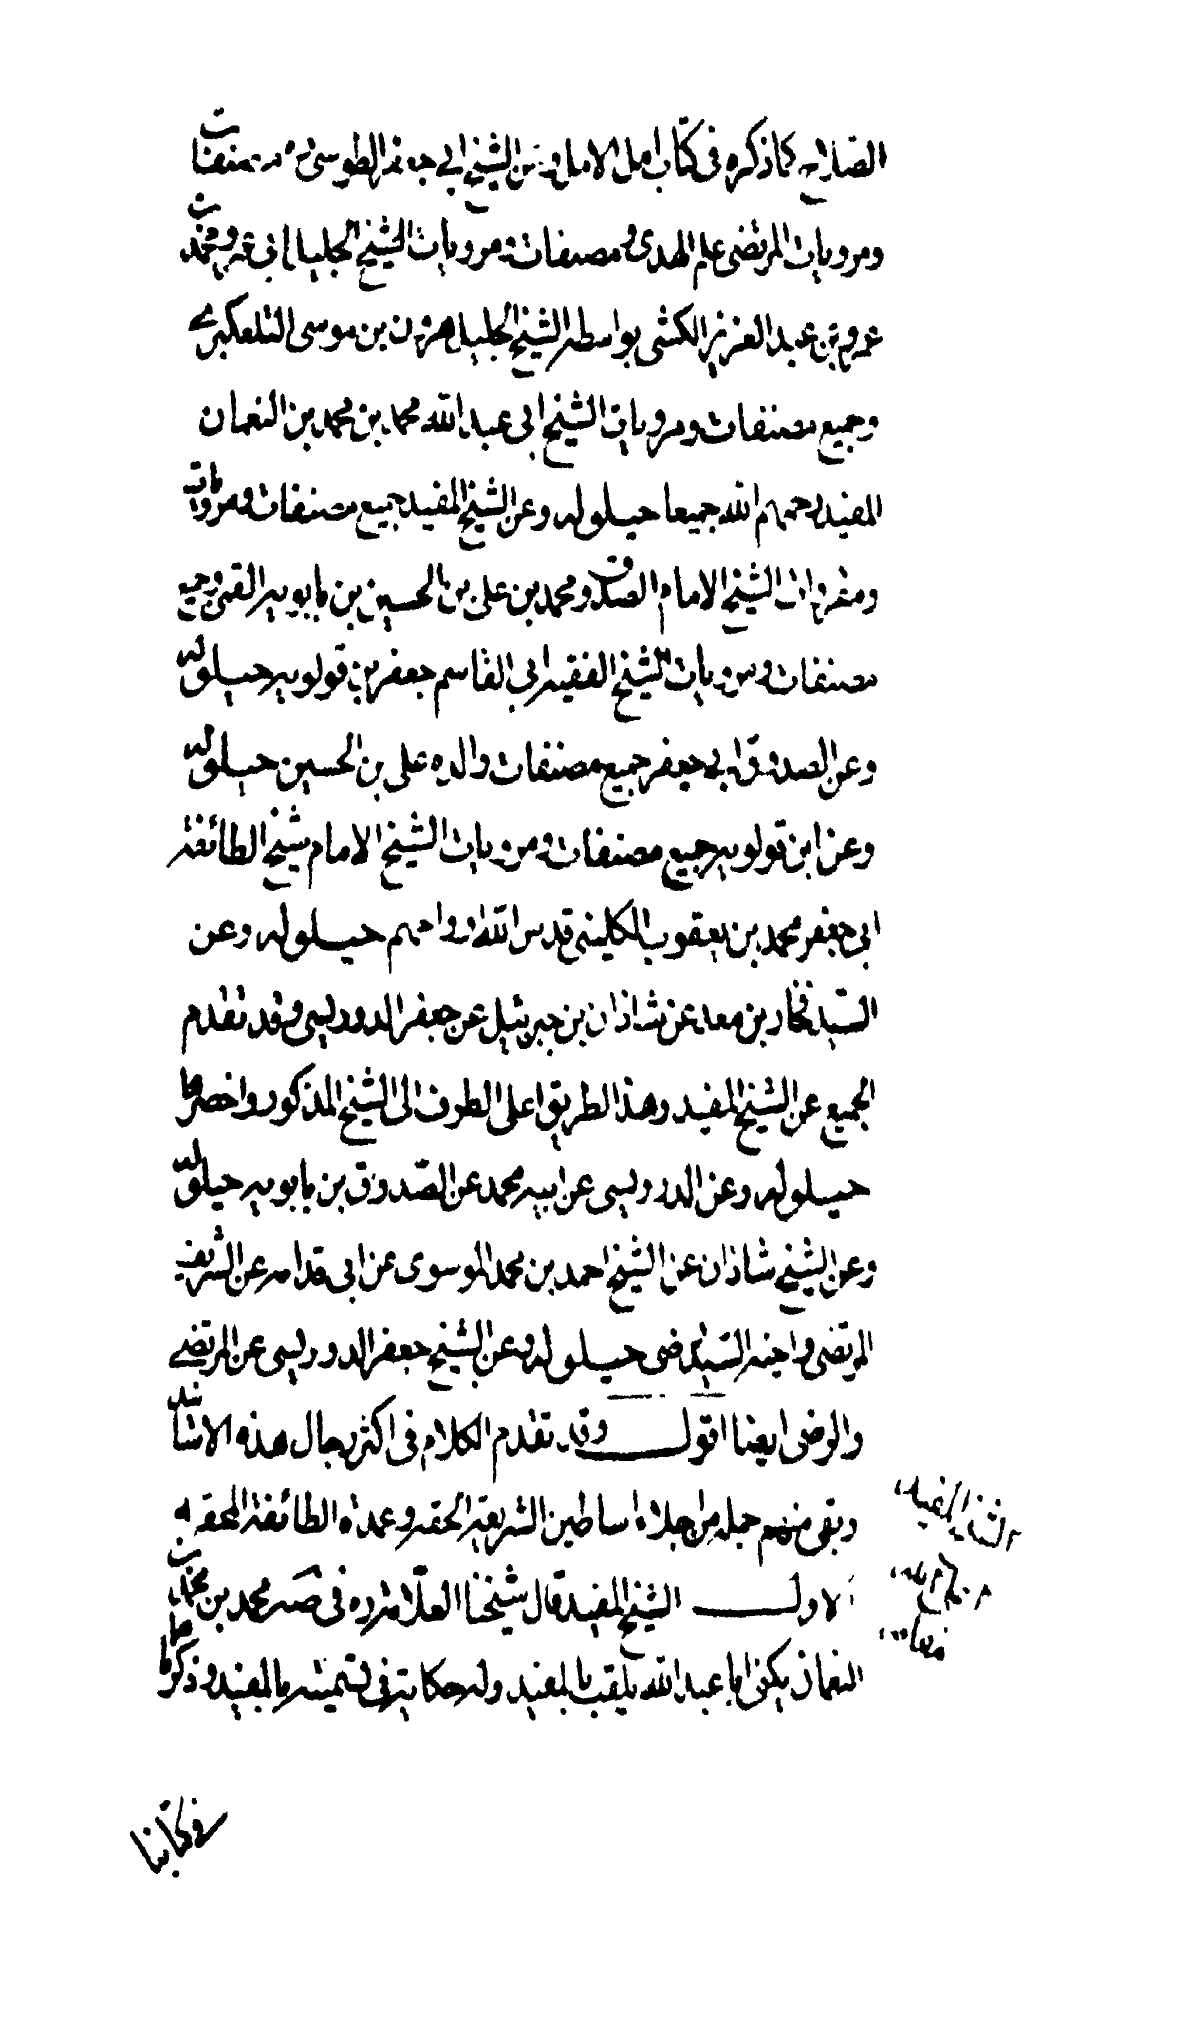 الصلاح كما ذكره في كتاب امل الامل وعن الشيخ ابي جعفر الطوسي مصنفات
ومرويات المرتضى علم الهدى ومصنفات ومرويات الشيخ الجليل ابي عمرو محمد بن
عمر بن عبد العزيز الكشي بواسطة الشيخ الجليل هرون بن موسى التلعكبري
وجميع مصنفات ومرويات الشيخ ابي عبد الله محمد بن محمد بن النعمان
المفيد رحمهم الله جميعا حيلولة وعن الشيخ المفيد جميع مصنفات ومرويات
ومقروات الشيخ الامام الصدوق محمد بن علي بن الحسين بن بابويه القمي وجميع
مصنفات ومرويات الشيخ الفقيه ابي القاسم جعفر بن قولويه حيلولة
وعن الصدوق ابي جعفر جميع مصنفات والده علي بن الحسين حيلولة
وعن ابن قولويه جميع مصنفات ومرويات الشيخ الامام شيخ الطائفة
ابي جعفر محمد بن يعقوب الكليني قدس الله ارواحهم حيلولة وعن
السيد فخار بن معد عن شاذان بن جبرئيل عن جعفر الدوريسي وقد تقدم
الجميع عن الشيخ المفيد وهذا الطريق اعلى الطرق الى الشيخ المذكور واخصرها
حيلولة وعن الدوريسي عن ابيه محمد عن الصدوق بن بابويه حيلولة
وعن الشيخ شاذان عن الشيخ احمد بن محمد الموسوي عن ابي قدامة عن الشريف
المرتضى واخيه السيد الرضي حيلولة وعن الشيخ جعفر الدوريسي عن المرتضى
والرضي ايضا اقول وقد تقدم الكلام في اكثر رجال هذه الاسانيد
وبقي منهم جملة من اجلاء اساطين الشريعة الحقة وعمدة الطائفة المحقة
الاول الشيخ المفيد قال شيخنا العلامة ره في حقه محمد بن محمد بن
النعمان يكنى ابا عبد الله يلقب بالمفيد وله حكاية في تسميته بالمفيد ذكرناها
في كتابنا